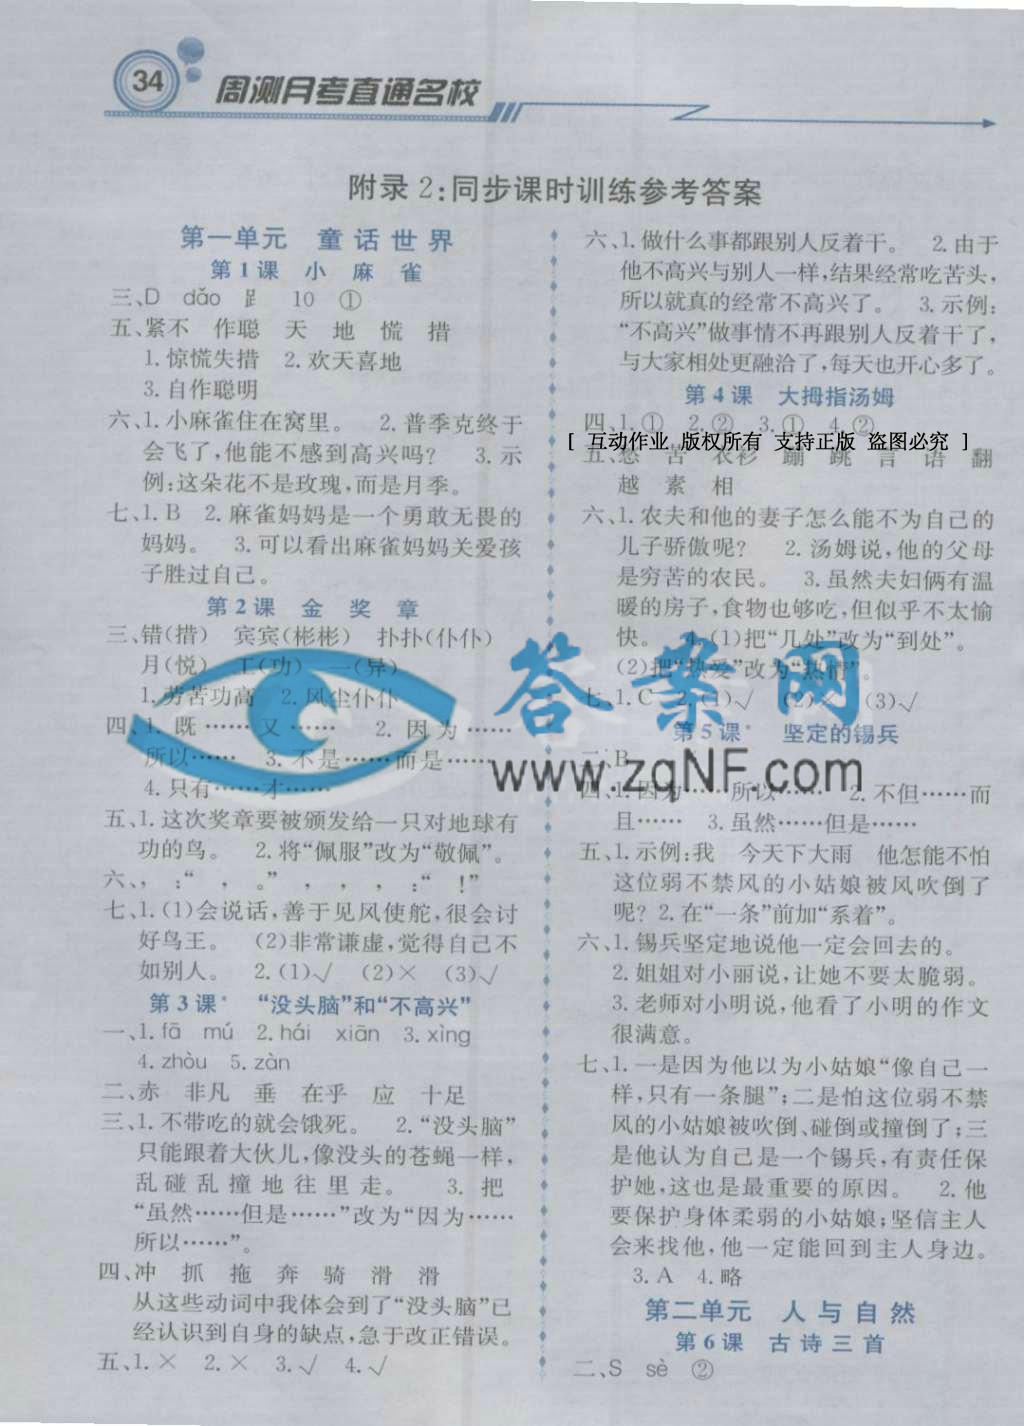 34
周测月考直通名校
附录2:同步课时训练参考答案
第一单元 童话世界
第1课 小麻雀
三、D dǎo 𧾷 10 ①
五、紧不 作聪 天 地 慌 措
1.惊慌失措 2.欢天喜地
3.自作聪明
六、1.小麻雀住在窝里。 2.普季克终于
会飞了,他能不感到高兴吗? 3.示
例:这朵花不是玫瑰,而是月季。
七、1.B 2.麻雀妈妈是一个勇敢无畏的
妈妈。 3.可以看出麻雀妈妈关爱孩
子胜过自己。
第2课 金奖章
三、错(措) 宾宾(彬彬) 扑扑(仆仆)
月(悦) 工(功) 一(异)
1.劳苦功高 2.风尘仆仆
四、1.既……又…… 2.因为……
所以…… 3.不是……而是……
4.只有……才……
五、1.这次奖章要被颁发给一只对地球有
功的鸟。 2.将“佩服”改为“敬佩”。
六、, :“ , 。” , , , :“ !”
七、1.(1)会说话,善于见风使舵,很会讨
好鸟王。 (2)非常谦虚,觉得自己不
如别人。 2.(1)√ (2)× (3)√
第3课* “没头脑”和“不高兴”
一、1.fā mú 2.hái xiān 3.xìng
4.zhòu 5.zàn
二、赤 非凡 垂 在乎 应 十足
三、1.不带吃的就会饿死。 2.“没头脑”
只能跟着大伙儿,像没头的苍蝇一样,
乱碰乱撞地往里走。 3.把
“虽然……但是……”改为“因为……
所以……”。
四、冲 抓 拖 奔 骑 滑 滑
从这些动词中我体会到了“没头脑”已
经认识到自身的缺点,急于改正错误。
五、1.× 2.× 3.√ 4.√
六、1.做什么事都跟别人反着干。 2.由于
他不高兴与别人一样,结果经常吃苦头,
所以就真的经常不高兴了。 3.示例:
“不高兴”做事情不再跟别人反着干了,
与大家相处更融洽了,每天也开心多了。
第4课 大拇指汤姆
四、1.① 2.② 3.① 4.②
[ 互动作业 版权所有 支持正版 盗图必究 ]
五、愁 苦 衣衫 蹦 跳 言 语 翻
越 素 相
六、1.农夫和他的妻子怎么能不为自己的
儿子骄傲呢? 2.汤姆说,他的父母
是穷苦的农民。 3.虽然夫妇俩有温
暖的房子,食物也够吃,但似乎不太愉
快。 4.(1)把“几处”改为“到处”。
(2)把“热爱”改为“热情”。
七、1.C 2.(1)√ (2)× (3)√
第5课* 坚定的锡兵
二、B
四、1.因为……所以…… 2.不但……而
且…… 3.虽然……但是……
五、1.示例:我 今天下大雨 他怎能不怕
这位弱不禁风的小姑娘被风吹倒了
呢? 2.在“一条”前加“系着”。
六、1.锡兵坚定地说他一定会回去的。
2.姐姐对小丽说,让她不要太脆弱。
3.老师对小明说,他看了小明的作文
很满意。
七、1.一是因为他以为小姑娘“像自己一
样,只有一条腿”;二是怕这位弱不禁
风的小姑娘被吹倒、碰倒或撞倒了;三
是他认为自己是一个锡兵,有责任保
护她,这也是最重要的原因。 2.他
要保护身体柔弱的小姑娘;坚信主人
会来找他,他一定能回到主人身边。
3.A 4.略
第二单元 人与自然
第6课 古诗三首
二、S sè ②
答案网
www.zqNF.com